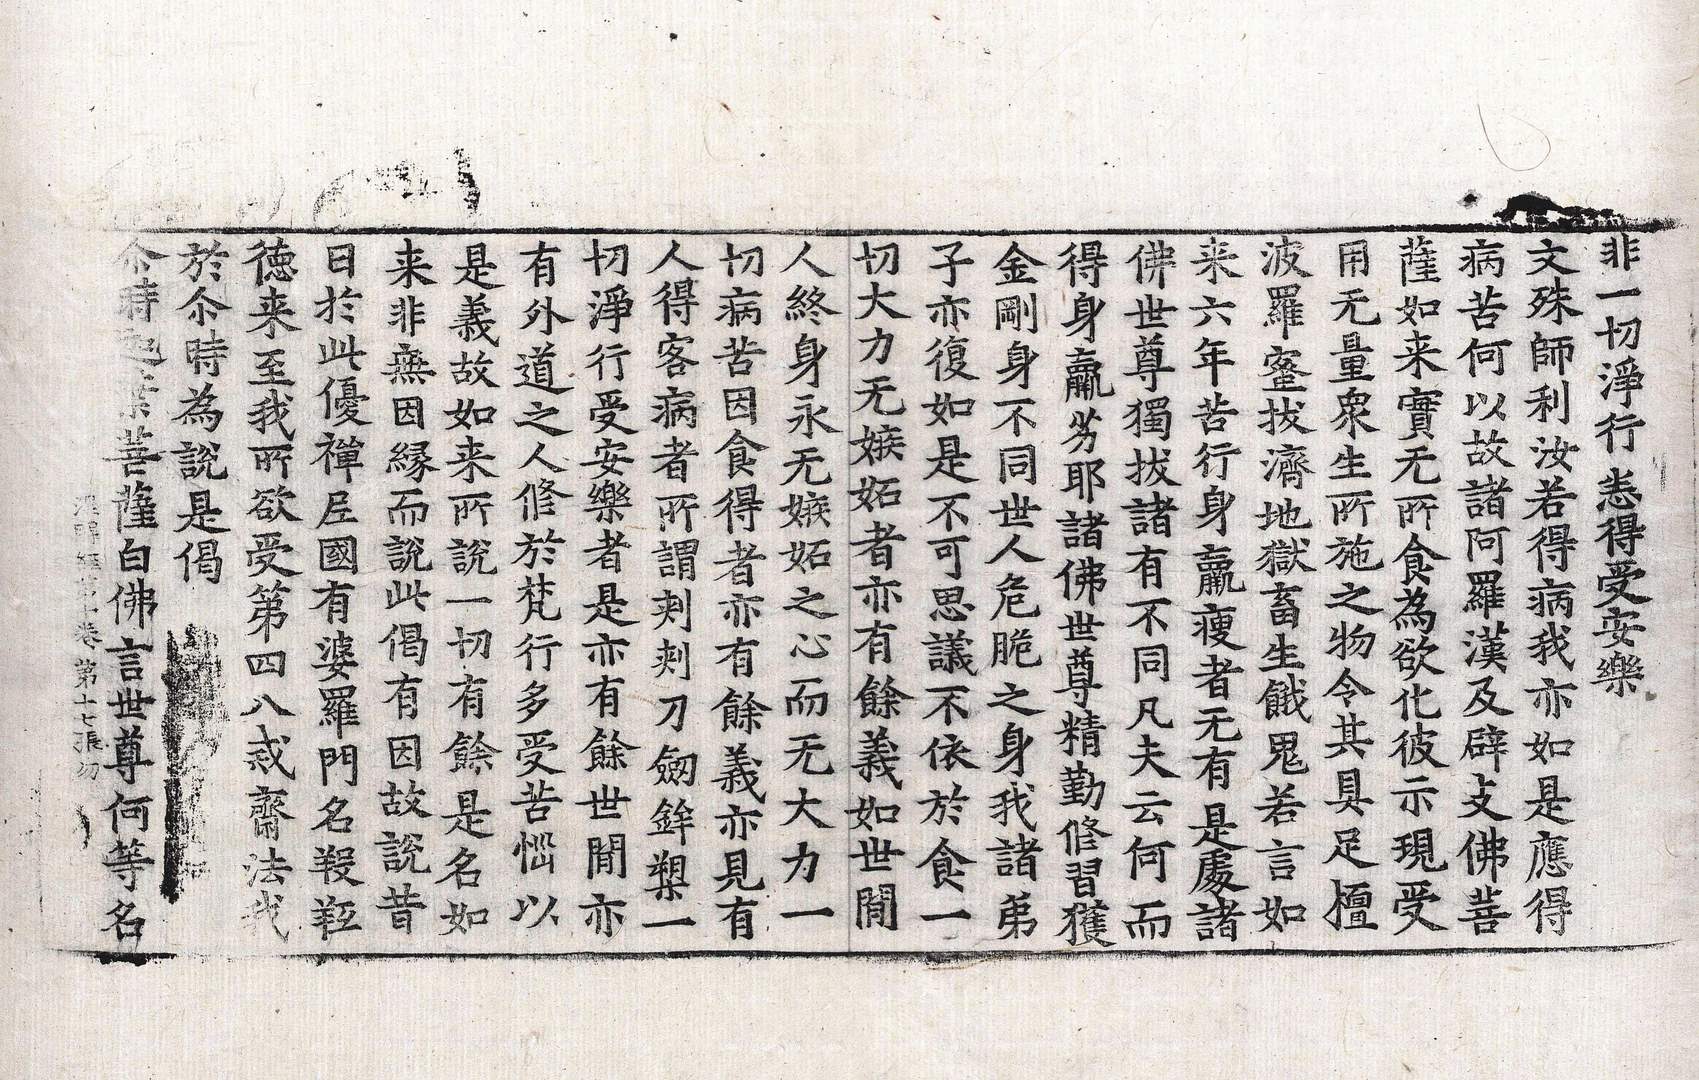 非一切淨行悉得受安樂
文殊師利汝若得病我亦如是應得
病苦何以故諸阿羅漢及辟支佛菩
薩如来實无所食為欲化彼示現受
用无量衆生所施之物令其具足檀
波羅蜜拔濟地獄畜生餓鬼若言如
来六年苦行身羸瘦者无有是處諸
佛世尊獨拔諸有不同凡夫云何而
得身羸劣耶諸佛世尊精勤修習獲
金剛身不同世人危脆之身我諸弟
子亦復如是不可思議不依於食一
切大力无嫉妬者亦有餘義如世間
人終身永无嫉妬之心而无大力一
切病苦因食得者亦有餘義亦見有
人得客病者所謂刾刾刀劒鉾槊一
切淨行受安樂者是亦有餘世間亦
有外道之人修於梵行多受苦惱以
是義故如来所說一切有餘是名如
来非無因縁而說此偈有因故說昔
日於此優禪尼國有婆羅門名羖羝
徳来至我所欲受第四八戒齋法我
於尒時為說是偈
尒時迦葉菩薩白佛言世尊何等名
卷第十七張勿